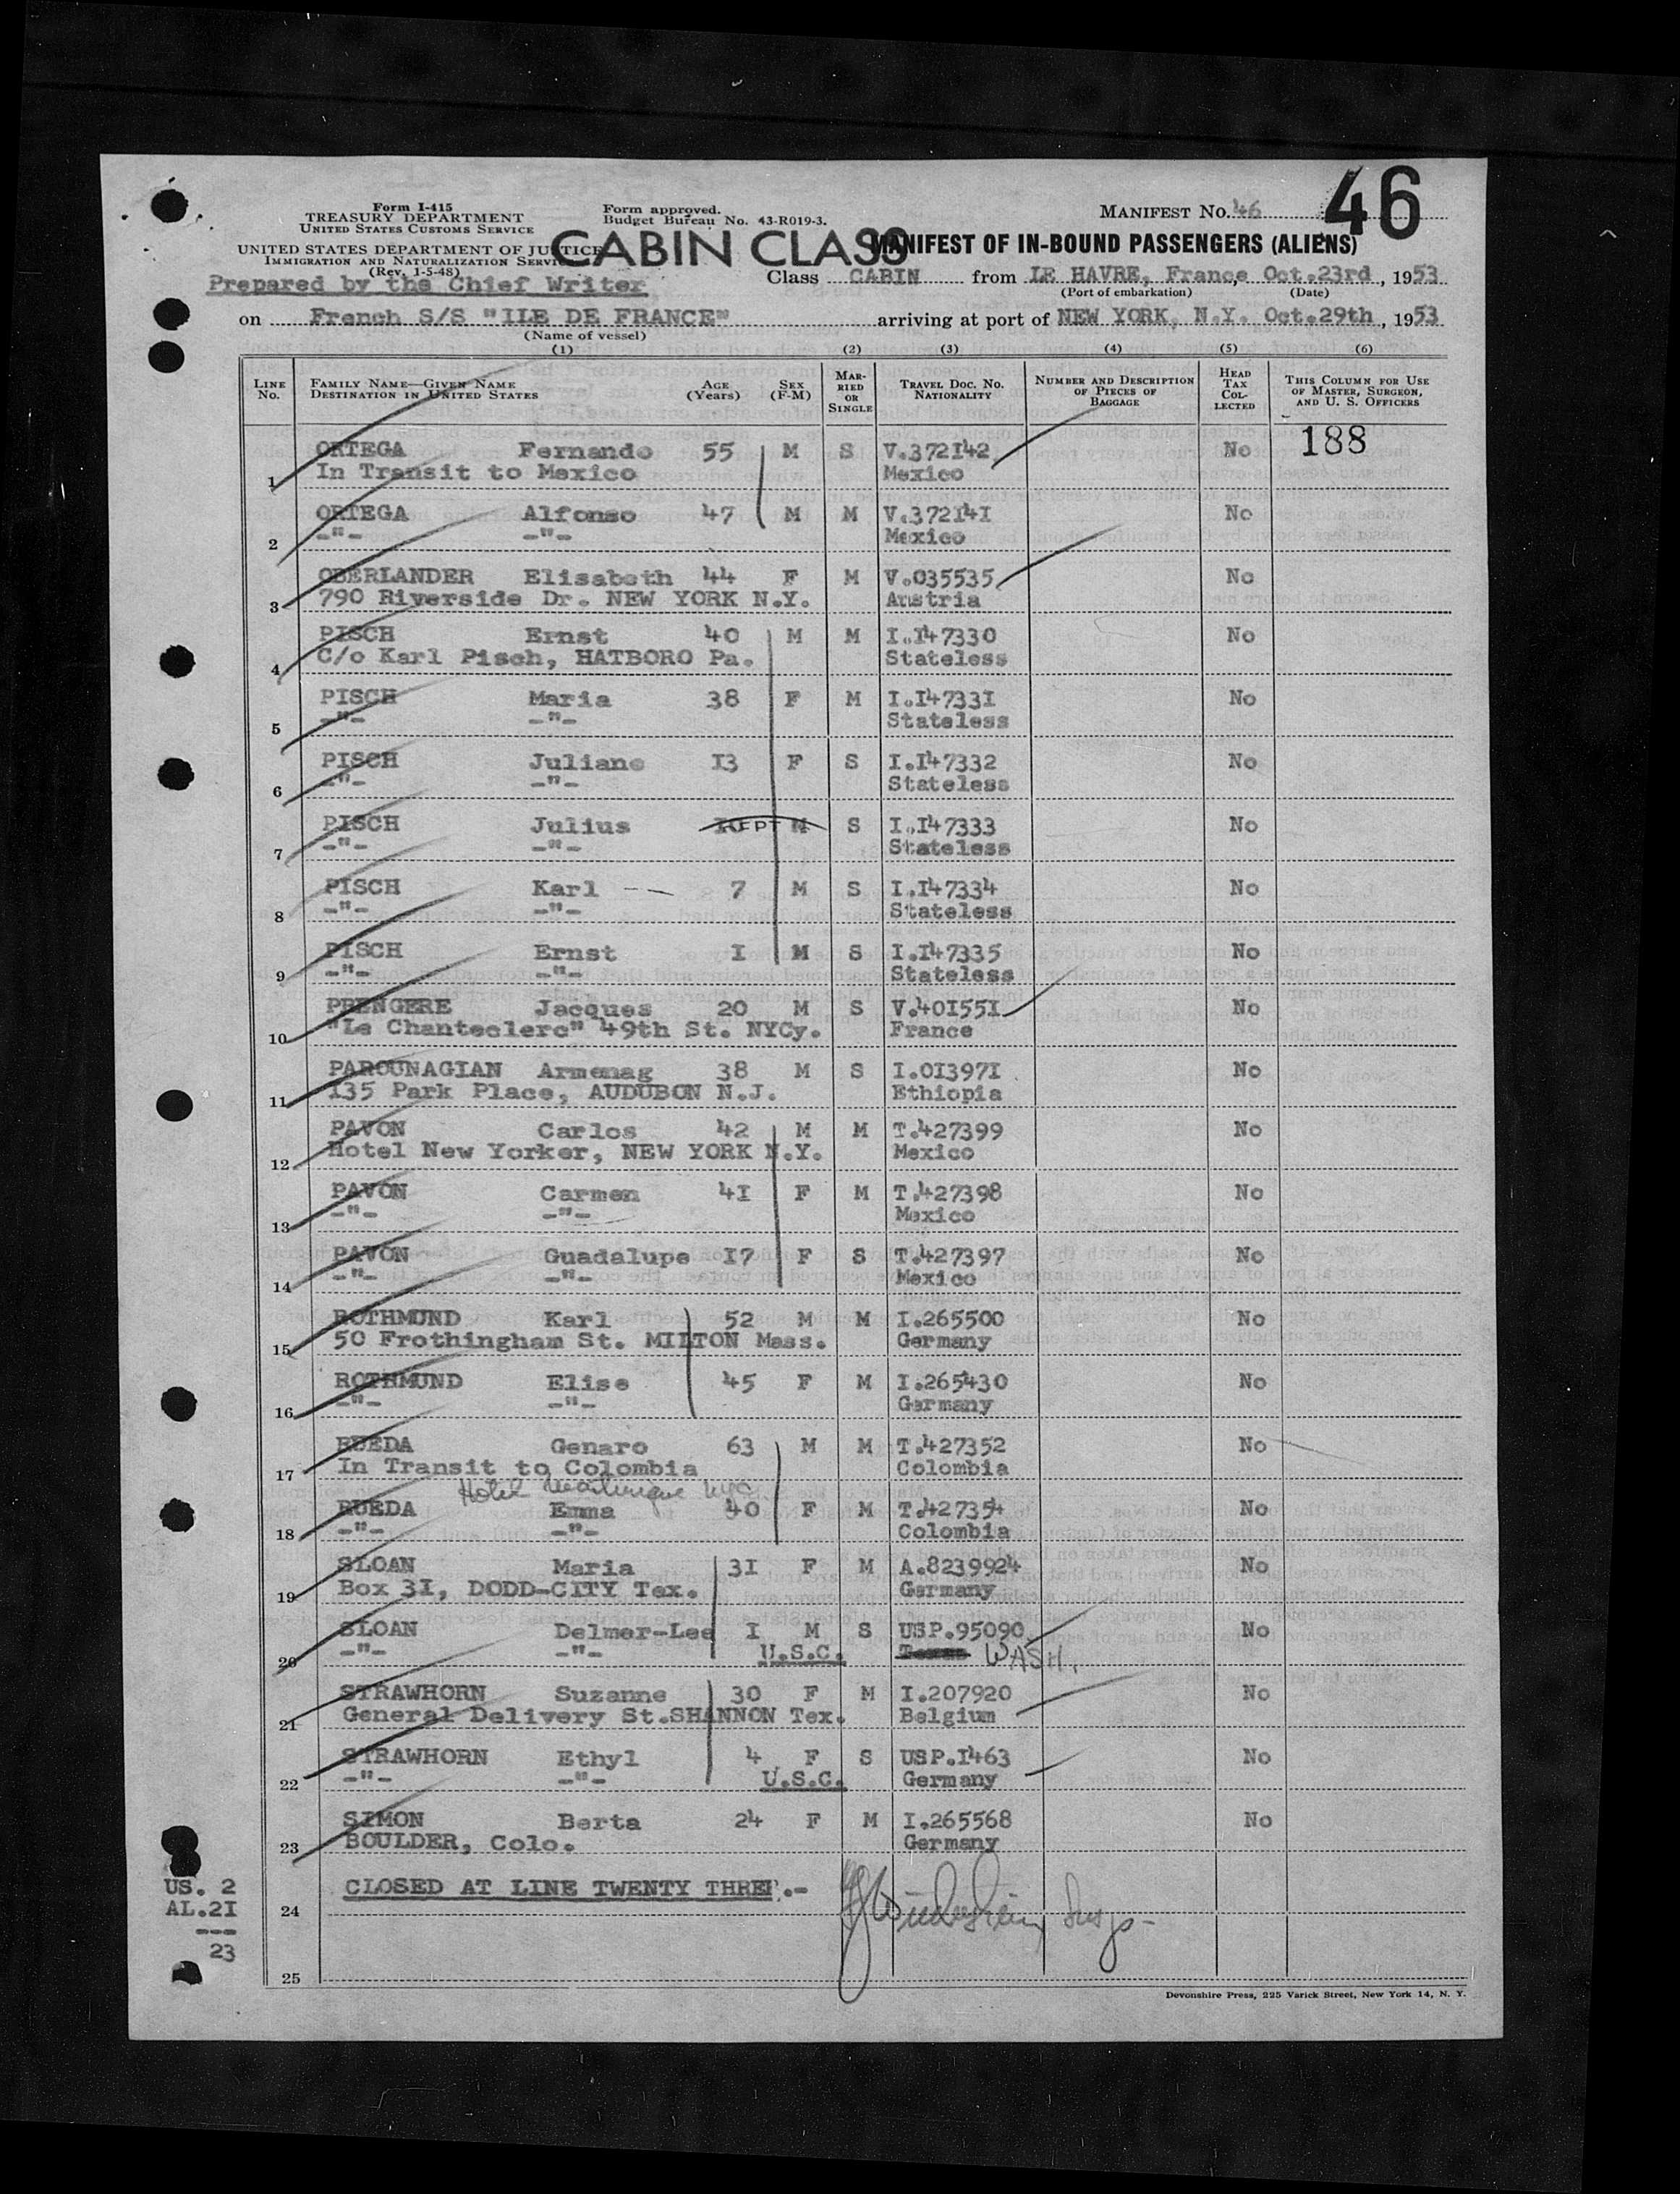 46
Form I-415
TREASURY DEPARTMENT
UNITED STATES CUSTOMS SERVICE
Form approved.
Budget Bureau No. 43-R019-3.
MANIFEST No. 46
UNITED STATES DEPARTMENT OF JUSTICE
IMMIGRATION AND NATURALIZATION SERVICE
(Rev. 1-5-48)
CABIN CLASS
MANIFEST OF IN-BOUND PASSENGERS (ALIENS)
Prepared by the Chief Writer
Class CABIN from LE HAVRE, France, Oct.23rd, 1953
(Port of embarkation) (Date)
on French S/S "ILE DE FRANCE" arriving at port of NEW YORK, N.Y. Oct.29th, 1953
(Name of vessel)
(1) (2) (3) (4) (5) (6)
LINE No. FAMILY NAME—GIVEN NAME DESTINATION IN UNITED STATES AGE (Years) SEX (F-M) MARRIED OR SINGLE TRAVEL DOC. NO. NATIONALITY NUMBER AND DESCRIPTION OF PIECES OF BAGGAGE HEAD TAX COLLECTED THIS COLUMN FOR USE OF MASTER, SURGEON, AND U. S. OFFICERS
ORTEGA Fernando 55 M S V.372I42 No 188
1 In Transit to Mexico Mexico
ORTEGA Alfonso 47 M M V.372I4I No
2 -"- -"- Mexico
OBERLANDER Elisabeth 44 F M V.035535 No
3 790 Riverside Dr. NEW YORK N.Y. Austria
PISCH Ernst 40 M M I.I47330 No
4 C/o Karl Pisch, HATBORO Pa. Stateless
PISCH Maria 38 F M I.I4733I No
5 -"- -"- Stateless
PISCH Juliane I3 F S I.I47332 No
6 -"- -"- Stateless
PISCH Julius M S I.I47333 No
7 -"- -"- Stateless
PISCH Karl 7 M S I.I47334 No
8 -"- -"- Stateless
PISCH Ernst I M S I.I47335 No
9 -"- -"- Stateless
PRENGERE Jacques 20 M S V.40I55I No
10 "Le Chanteclerc" 49th St. NYCy. France
PAROUNAGIAN Armenag 38 M S I.0I397I No
11 I35 Park Place, AUDUBON N.J. Ethiopia
PAVON Carlos 42 M M T.427399 No
12 Hotel New Yorker, NEW YORK N.Y. Mexico
PAVON Carmen 4I F M T.427398 No
13 -"- -"- Mexico
PAVON Guadalupe I7 F S T.427397 No
14 -"- -"- Mexico
ROTHMUND Karl 52 M M I.265500 No
15 50 Frothingham St. MILTON Mass. Germany
ROTHMUND Elise 45 F M I.265430 No
16 -"- -"- Germany
RUEDA Genaro 63 M M T.427352 No
17 In Transit to Colombia Colombia
Hotel Martinique NYC
RUEDA Emma 40 F M T.427354 No
18 -"- -"- Colombia
SLOAN Maria 3I F M A.8239924 No
19 Box 3I, DODD-CITY Tex. Germany
SLOAN Delmer-Lee I M S USP.95090 No
20 -"- -"- U.S.C. WASH.
STRAWHORN Suzanne 30 F M I.207920 No
21 General Delivery St.SHANNON Tex. Belgium
STRAWHORN Ethyl 4 F S USP.I463 No
22 -"- -"- U.S.C. Germany
SIMON Berta 24 F M I.265568 No
23 BOULDER, Colo. Germany
US. 2
AL.2I
---
23
24 CLOSED AT LINE TWENTY THREE.-
25
Devonshire Press, 225 Varick Street, New York 14, N. Y.